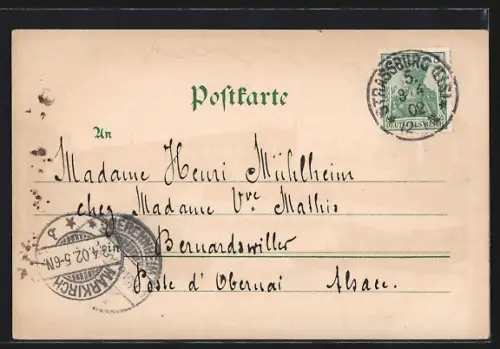 STRASSBURG (ELS)
5.
3.4
02
DEUTSCHES REICH
Postkarte
An
Madame Henri Mühlheim
chez Madame Vve Mathis
in
Bernardswiller
Poste d'Obernai Alsace.
MARKIRCH
3.4.02.5-6N.
b